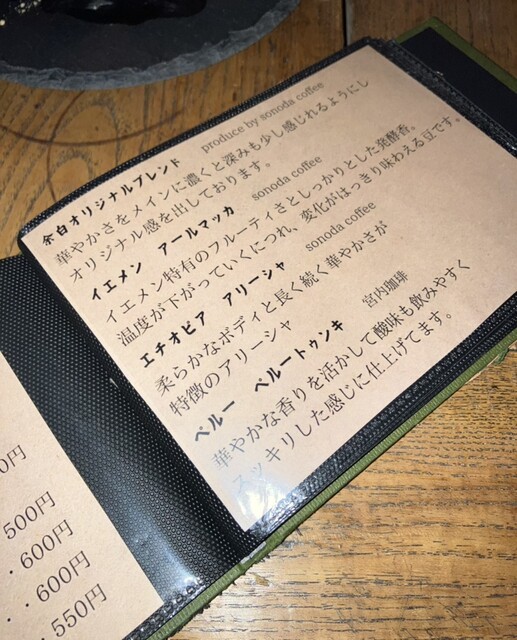 余白オリジナルブレンド produce by sonoda coffee
華やかさをメインに濃くと深みも少し感じれるようにし
オリジナル感を出しております。
イエメン アールマッカ sonoda coffee
イエメン特有のフルーティさとしっかりとした発酵香。
温度が下がっていくにつれ、変化がはっきり味わえる豆です。
エチオピア アリーシャ sonoda coffee
柔らかなボディと長く続く華やかさが
特徴のアリーシャ
ペルー ペルートゥンキ 宮内珈琲
華やかな香りを活かして酸味も飲みやすく
スッキリした感じに仕上げてます。
0円
500円
・・600円
・・600円
・550円